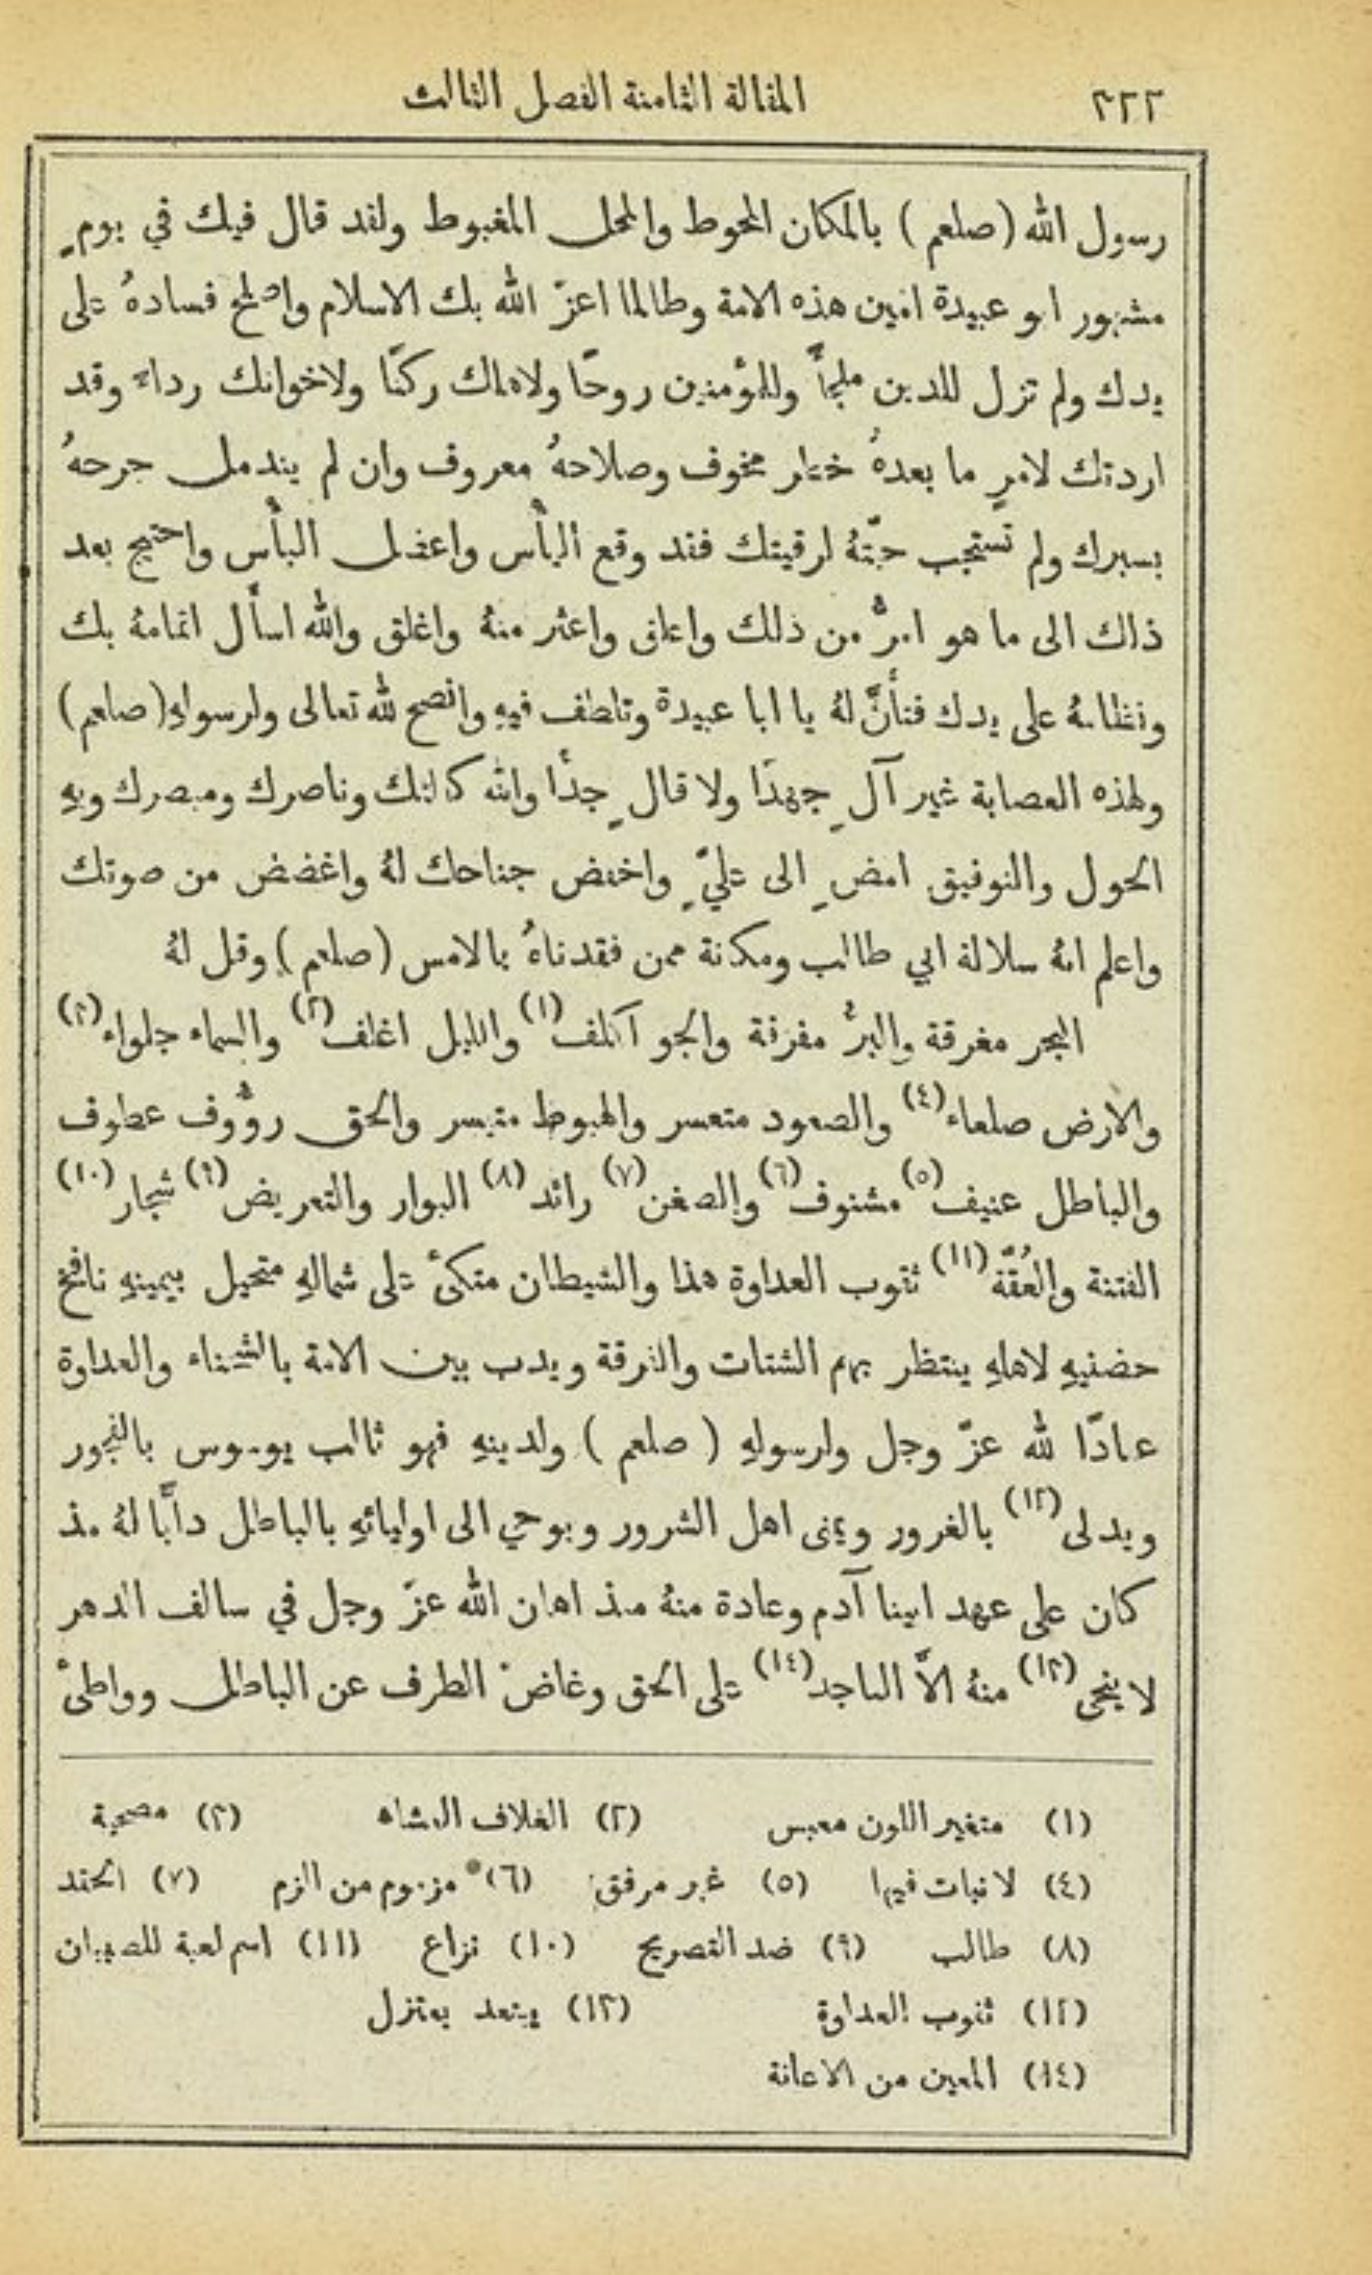 ٢٢٢ المقالة الثامنة الفصل الثالث
رسول الله (صلعم) بالمكان المحوط والمحل المغبوط ولقد قال فيك في يومٍ
مشهور ابو عبيدة امين هذه الامة وطالما اعزّ الله بك الاسلام واصلح فسادهُ على
يدك ولم تزل للدين ملجأً وللمؤمنين روحًا ولاهلك ركنًا ولاخوانك رداء وقد
اردتك لامرٍ ما بعدهُ خطر مخوف وصلاحهُ معروف وان لم يندمل جرحهُ
بسبرك ولم تستجب حيّتهُ لرقيتك فقد وقع اليأس واعضل البأس واحتيج بعد
ذلك الى ما هو امرُّ من ذلك واعلق واعثر منهُ واغلق والله اسأل اتمامهُ بك
ونظامهُ على يدك فتأنَّ لهُ يا ابا عبيدة وتلطف فيهِ وانصح لله تعالى ولرسولهِ (صلعم)
ولهذه العصابة غير آلٍ جهدًا ولا قالٍ جدًا والله كالئك وناصرك ومبصرك وبهِ
الحول والتوفيق امضِ الى عليٍّ واخفض جناحك لهُ واغضض من صوتك
واعلم انهُ سلالة ابي طالب ومكانة ممن فقدناهُ بالامس (صلعم) وقل لهُ
البحر مغرقة والبرُّ مفرقة والجو اكلف(١) والليل اغلف(٢) والسماء جلواء(٣)
والارض صلعاء(٤) والصعود متعسر والهبوط متيسر والحق رؤُوف عطوف
والباطل عنيف(٥) مشنوف(٦) والضغن(٧) رائد(٨) البوار والتعريض(٩) شجار(١٠)
الفتنة والعُقّة(١١) ثقوب العداوة هذا والشيطان متكئ على شمالهِ متحيل بيمينهِ نافخ
حضنيهِ لاهلهِ ينتظر بهم الشتات والفرقة ويدب بين الامة بالشحناء والعداوة
عنادًا لله عزّ وجل ولرسولهِ (صلعم) ولدينهِ فهو ثالب يوسوس بالفجور
ويدلى(١٢) بالغرور ويمنى اهل الشرور ويوحي الى اوليائهِ بالباطل دأبًا لهُ مذ
كان على عهد ابينا آدم وعادة منهُ مذ اهان الله عزّ وجل في سالف الدهر
لا ينجى(١٣) منهُ الاَّ الناجد(١٤) على الحق وغاضّ الطرف عن الباطل وواطئ
(١) متغير اللون معبس (٢) الغلاف الغشاه (٣) مصحية
(٤) لا نبات فيها (٥) غير مرفق (٦) مزموم من الزم (٧) الحقد
(٨) طالب (٩) ضد التصريح (١٠) نزاع (١١) اسم لعبة للصبيان
(١٢) ثقوب العداوة (١٣) يبتعد يعتزل
(١٤) المعين من الاعانة